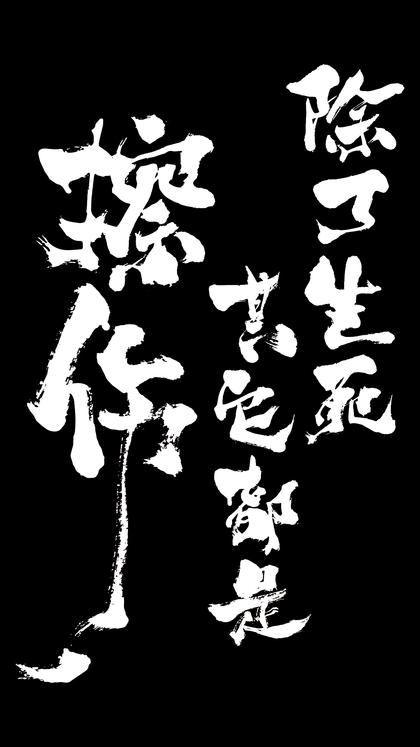 除了生死
其它都是
擦伤